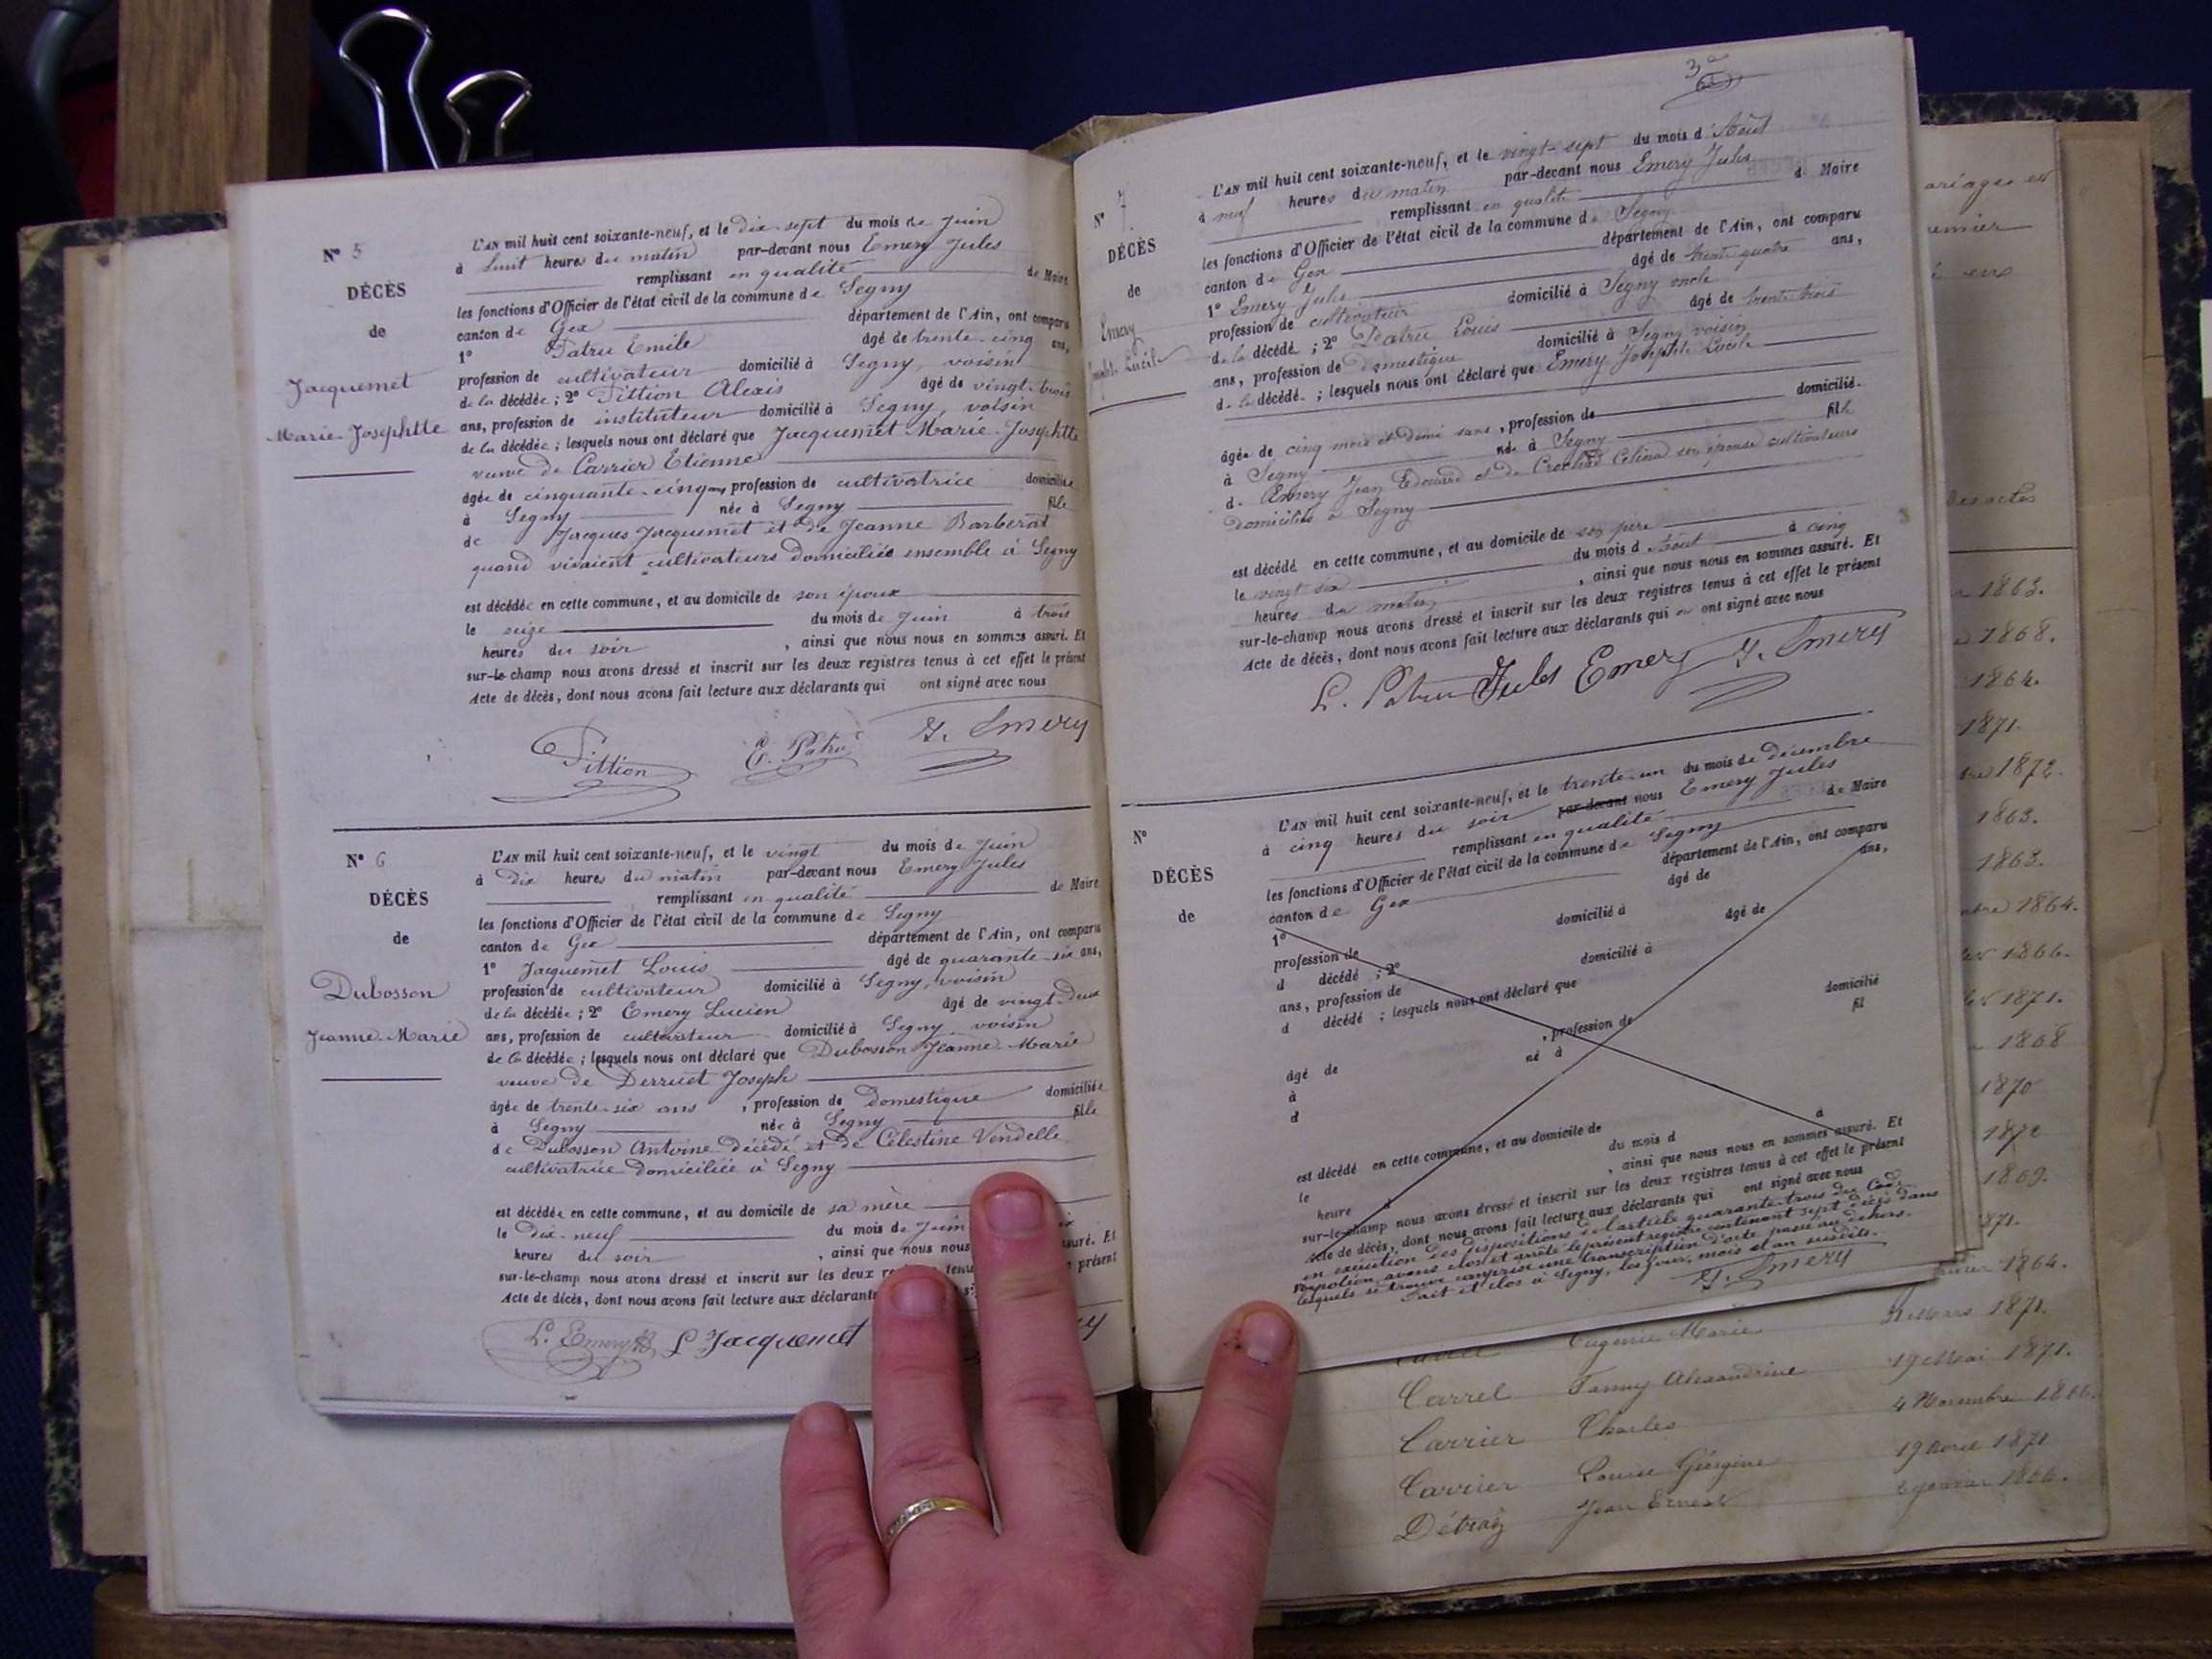 N° 5
DÉCÈS
de
Jacquemet
Marie-Josephtte
L'AN mil huit cent soixante-neuf, et le Dix-sept du mois de Juin
à huit heures du matin par-devant nous Emery Jules
remplissant en qualité de Maire
les fonctions d'Officier de l'état civil de la commune de Segny
canton de Gex département de l'Ain, ont comparu
1° Patru Emile âgé de trente-cinq ans,
profession de cultivateur domicilié à Segny, voisin
de la décédée ; 2° Pittion Alexis âgé de vingt-trois
ans, profession de instituteur domicilié à Segny, voisin
de la décédée ; lesquels nous ont déclaré que Jacquemet Marie-Josephtte
veuve de Carrier Etienne
âgée de cinquante-cinq ans, profession de cultivatrice domiciliée
à Segny née à Segny fille
de Jacques Jacquemet et de Jeanne Barberat
quand vivaient cultivateurs domiciliés ensemble à Segny
est décédée en cette commune, et au domicile de son époux
le seize du mois de Juin à trois
heures du soir , ainsi que nous nous en sommes assuré. Et
sur-le-champ nous avons dressé et inscrit sur les deux registres tenus à cet effet le présent
Acte de décès, dont nous avons fait lecture aux déclarants qui ont signé avec nous
Pittion E. Patru J. Emery
N° 6
DÉCÈS
de
Dubosson
Jeanne-Marie
L'AN mil huit cent soixante-neuf, et le vingt du mois de Juin
à Dix heures du matin par-devant nous Emery Jules
remplissant en qualité de Maire
les fonctions d'Officier de l'état civil de la commune de Segny
canton de Gex département de l'Ain, ont comparu
1° Jacquemet Louis âgé de quarante-six ans,
profession de cultivateur domicilié à Segny, voisin
de la décédée ; 2° Emery Lucien âgé de vingt-deux
ans, profession de cultivateur domicilié à Segny voisin
de la décédée ; lesquels nous ont déclaré que Dubosson Jeanne-Marie
veuve de Derruet Joseph
âgée de trente-six ans , profession de Domestique domiciliée
à Segny née à Segny fille
de Dubosson Antoine décédé et de Célestine Vendelle
cultivatrice domiciliée à Segny
est décédée en cette commune, et au domicile de sa mère
le Dix-neuf du mois de Juin
heures du soir , ainsi que nous nous assuré. Et
sur-le-champ nous avons dressé et inscrit sur les deux présent
Acte de décès, dont nous avons fait lecture aux déclarants
L. Emery L Jacquemet
3e
N° 7
DÉCÈS
de
Emery
Josephte Lucile
L'AN mil huit cent soixante-neuf, et le vingt-sept du mois d'Août
à neuf heures du matin par-devant nous Emery Jules
remplissant en qualité de Maire
les fonctions d'Officier de l'état civil de la commune de Segny
canton de Gex département de l'Ain, ont comparu
1° Emery Jules âgé de trente-quatre ans,
profession de cultivateur domicilié à Segny oncle
de la décédé ; 2° Patru Louis âgé de trente-trois
ans, profession de Domestique domicilié à Segny voisin
de la décédé ; lesquels nous ont déclaré que Emery Josephte Lucile
âgée de cinq mois et demi sans , profession de domicilié
à Segny née à Segny fille
de Emery Jean Edouard et de Crochat Celina son épouse cultivateurs
domiciliés à Segny
est décédé en cette commune, et au domicile de son père
le vingt six du mois d Août à cinq
heures du matin , ainsi que nous nous en sommes assuré. Et
sur-le-champ nous avons dressé et inscrit sur les deux registres tenus à cet effet le présent
Acte de décès, dont nous avons fait lecture aux déclarants qui ont signé avec nous
L. Patru Jules Emery J. Emery
N°
DÉCÈS
de
L'AN mil huit cent soixante-neuf, et le trente-un du mois de décembre
à cinq heures du soir par-devant nous Emery Jules
remplissant en qualité de Maire
les fonctions d'Officier de l'état civil de la commune de Segny
canton de Gex département de l'Ain, ont comparu
1° âgé de ans,
profession de domicilié à
d décédé ; 2° âgé de
ans, profession de domicilié à
d décédé ; lesquels nous ont déclaré que
âgé de , profession de domicilié
à né à fil
d
est décédé en cette commune, et au domicile de
le du mois d à
heure d , ainsi que nous nous en sommes assuré. Et
sur-le-champ nous avons dressé et inscrit sur les deux registres tenus à cet effet le présent
Acte de décès, dont nous avons fait lecture aux déclarants qui ont signé avec nous
en exécution des dispositions de l'article quarante-trois du Code
Napoléon avons clos et arrêté le présent registre contenant sept décès dans
lesquels se trouve comprise une transcription d'acte passé au dehors.
Fait et clos à Segny, les jour, mois et an susdits.
J. Emery
1863.
1868.
1864.
1871.
1872.
1863.
1863.
1864.
1866.
1871.
1868
1870
1872
1869.
871.
1864.
Eugénie Marie Mars 1871.
Carrel Fanny Alexandrine 19 Mai 1871.
Carrier Charles 4 Novembre 1866.
Carrier Louise Géorgine 19 Avril 1871
Détraz Jean Ernest Janvier 1866.